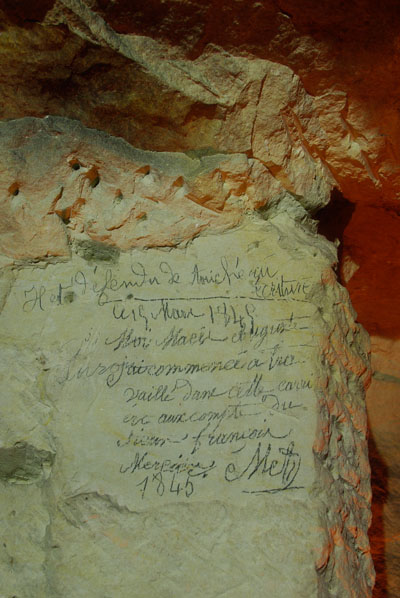 Il et défendu de touché au
écriture
Le 19 Mars 1845
Moi Macé Auguste
j'ai commencé a tra
vaille dans cette carri
ère aux compte du
sieur françois
Mercier
1845